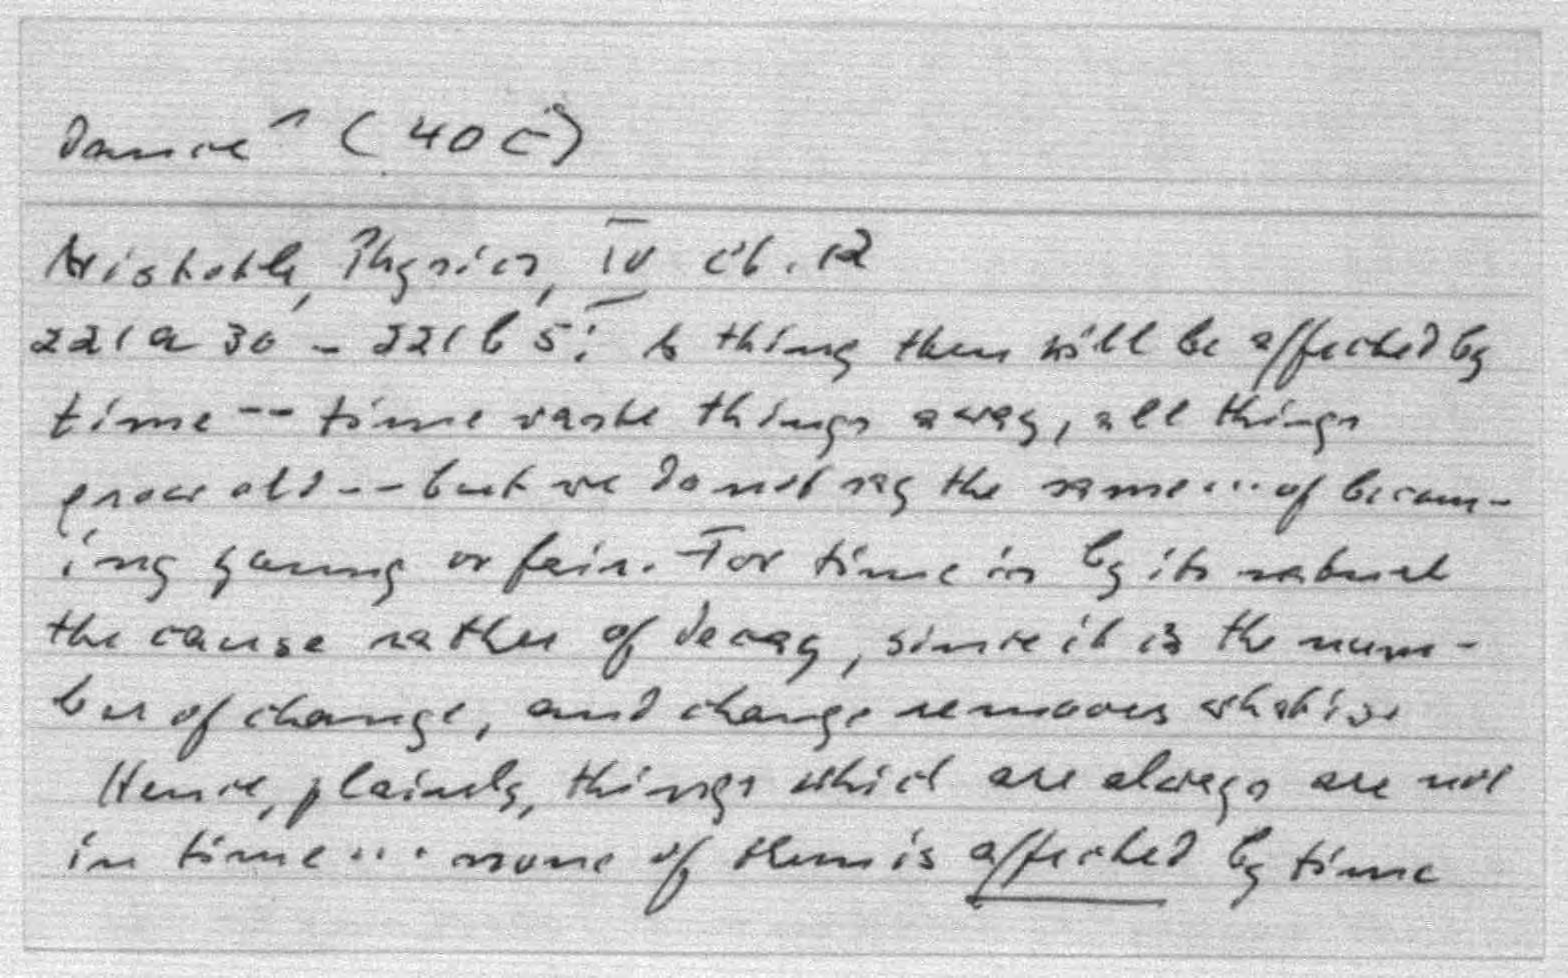 Dance (40 C)
Aristotle, Physics, IV ch. 12
221a 30 - 221b 5: A thing then will be affected by
time -- time waste things away, all things
grow old -- but we do not say the same ... of becom-
ing young or fair. For time is by its nature
the cause rather of decay, since it is the num-
ber of change, and change removes what is.
Hence, plainly, things which are always are not
in time ... none of them is affected by time